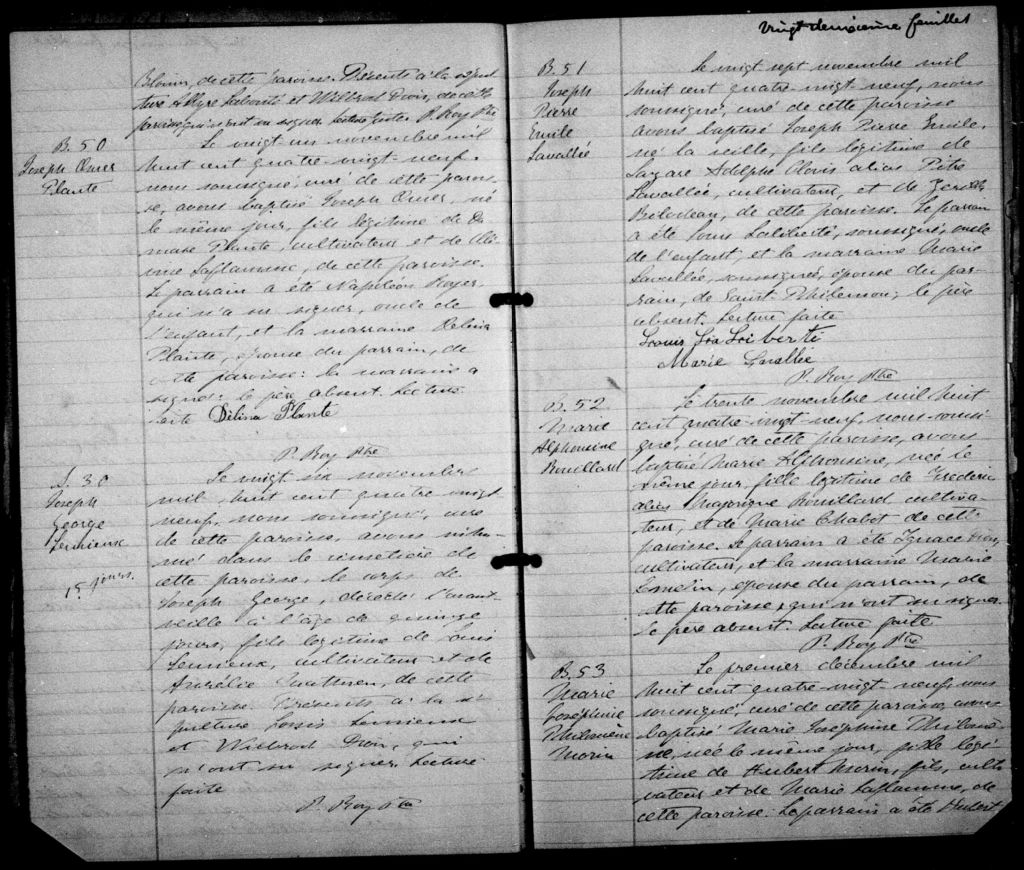 de cette paroisse. Présents à la sépul
ture et Wilbrod Dion, de cette
paroisse qui n'ont su signer. Lecture faite. P. Roy Ptre
B. 50
Joseph Omer
Plante
Le vingt un novembre mil
huit cent quatre-vingt-neuf,
nous soussigné, curé de cette parois-
se, avons baptisé Joseph Omer, né
le même jour, fils légitime de Da
mase Plante, cultivateur et de Clé
Laflamme, de cette paroisse.
Le parrain a été Napoléon Royer,
qui n'a su signer, oncle de
l'enfant, et la marraine Delina
Plante, épouse du parrain, de
cette paroisse: la marraine a
signé: le père absent. Lecture
faite Délina Plante
P. Roy Ptre
S. 30
Joseph
George
Lemieux
15 jours.
Le vingt six novembre
mil huit cent quatre vingt
neuf, nous soussigné, curé
de cette paroisse, avons inhu-
mé dans le cimetière de
cette paroisse, le corps de
Joseph George, décédé l'avant
veille à l'âge de quinze
jours, fils légitime de Louis
Lemieux, cultivateur et de
Aurélie de cette
paroisse. Présents à la sé
pulture Louis Lemieux
et Wilbrod Dion, qui
n'ont su signer. Lecture
faite
P. Roy Ptre
vingt deuxième feuillet
B. 51
Joseph
Pierre
Emile
Lavallée
Le vingt sept novembre mil
huit cent quatre-vingt neuf, nous
soussigné, curé de cette paroisse
avons baptisé Joseph Pierre Emile,
né la veille, fils légitime de
Lazare Adolphe Clovis alias Pitre
Lavallée, cultivateur, et de
Bilodeau, de cette paroisse. Le parrain
a été Louis Laliberté, soussigné, oncle
de l'enfant, et la marraine Marie
Lavallée, soussignée, épouse du par-
rain, de Saint-Philemon; le père
absent. Lecture faite
Louis
Marie Lavallée
P. Roy Ptre
B. 52
Marie
Alphonsine
Rouillard
Le trente novembre mil huit
cent quatre-vingt-neuf, nous sous-
gné, curé de cette paroisse, avons
baptisé Marie Alphonsine, née le
même jour, fille légitime de Frédéric
alias Majorique Rouillard cultiva-
teur, et de Marie Chabot de cette
paroisse. Le parrain a été Ignace
cultivateur, et la marraine Marie
épouse du parrain, de
cette paroisse, qui n'ont su signer.
Le père absent. Lecture faite
P. Roy Ptre
B. 53
Marie
Joséphine
Philomène
Morin
Le premier décembre mil
huit cent quatre-vingt-neuf, nous
soussigné, curé de cette paroisse, avons
baptisé Marie Joséphine Philomè
ne, née le même jour, fille légi
time de Hubert Morin, fils, culti
vateur et de Marie Laflamme, de
cette paroisse. Le parrain a été Hubert